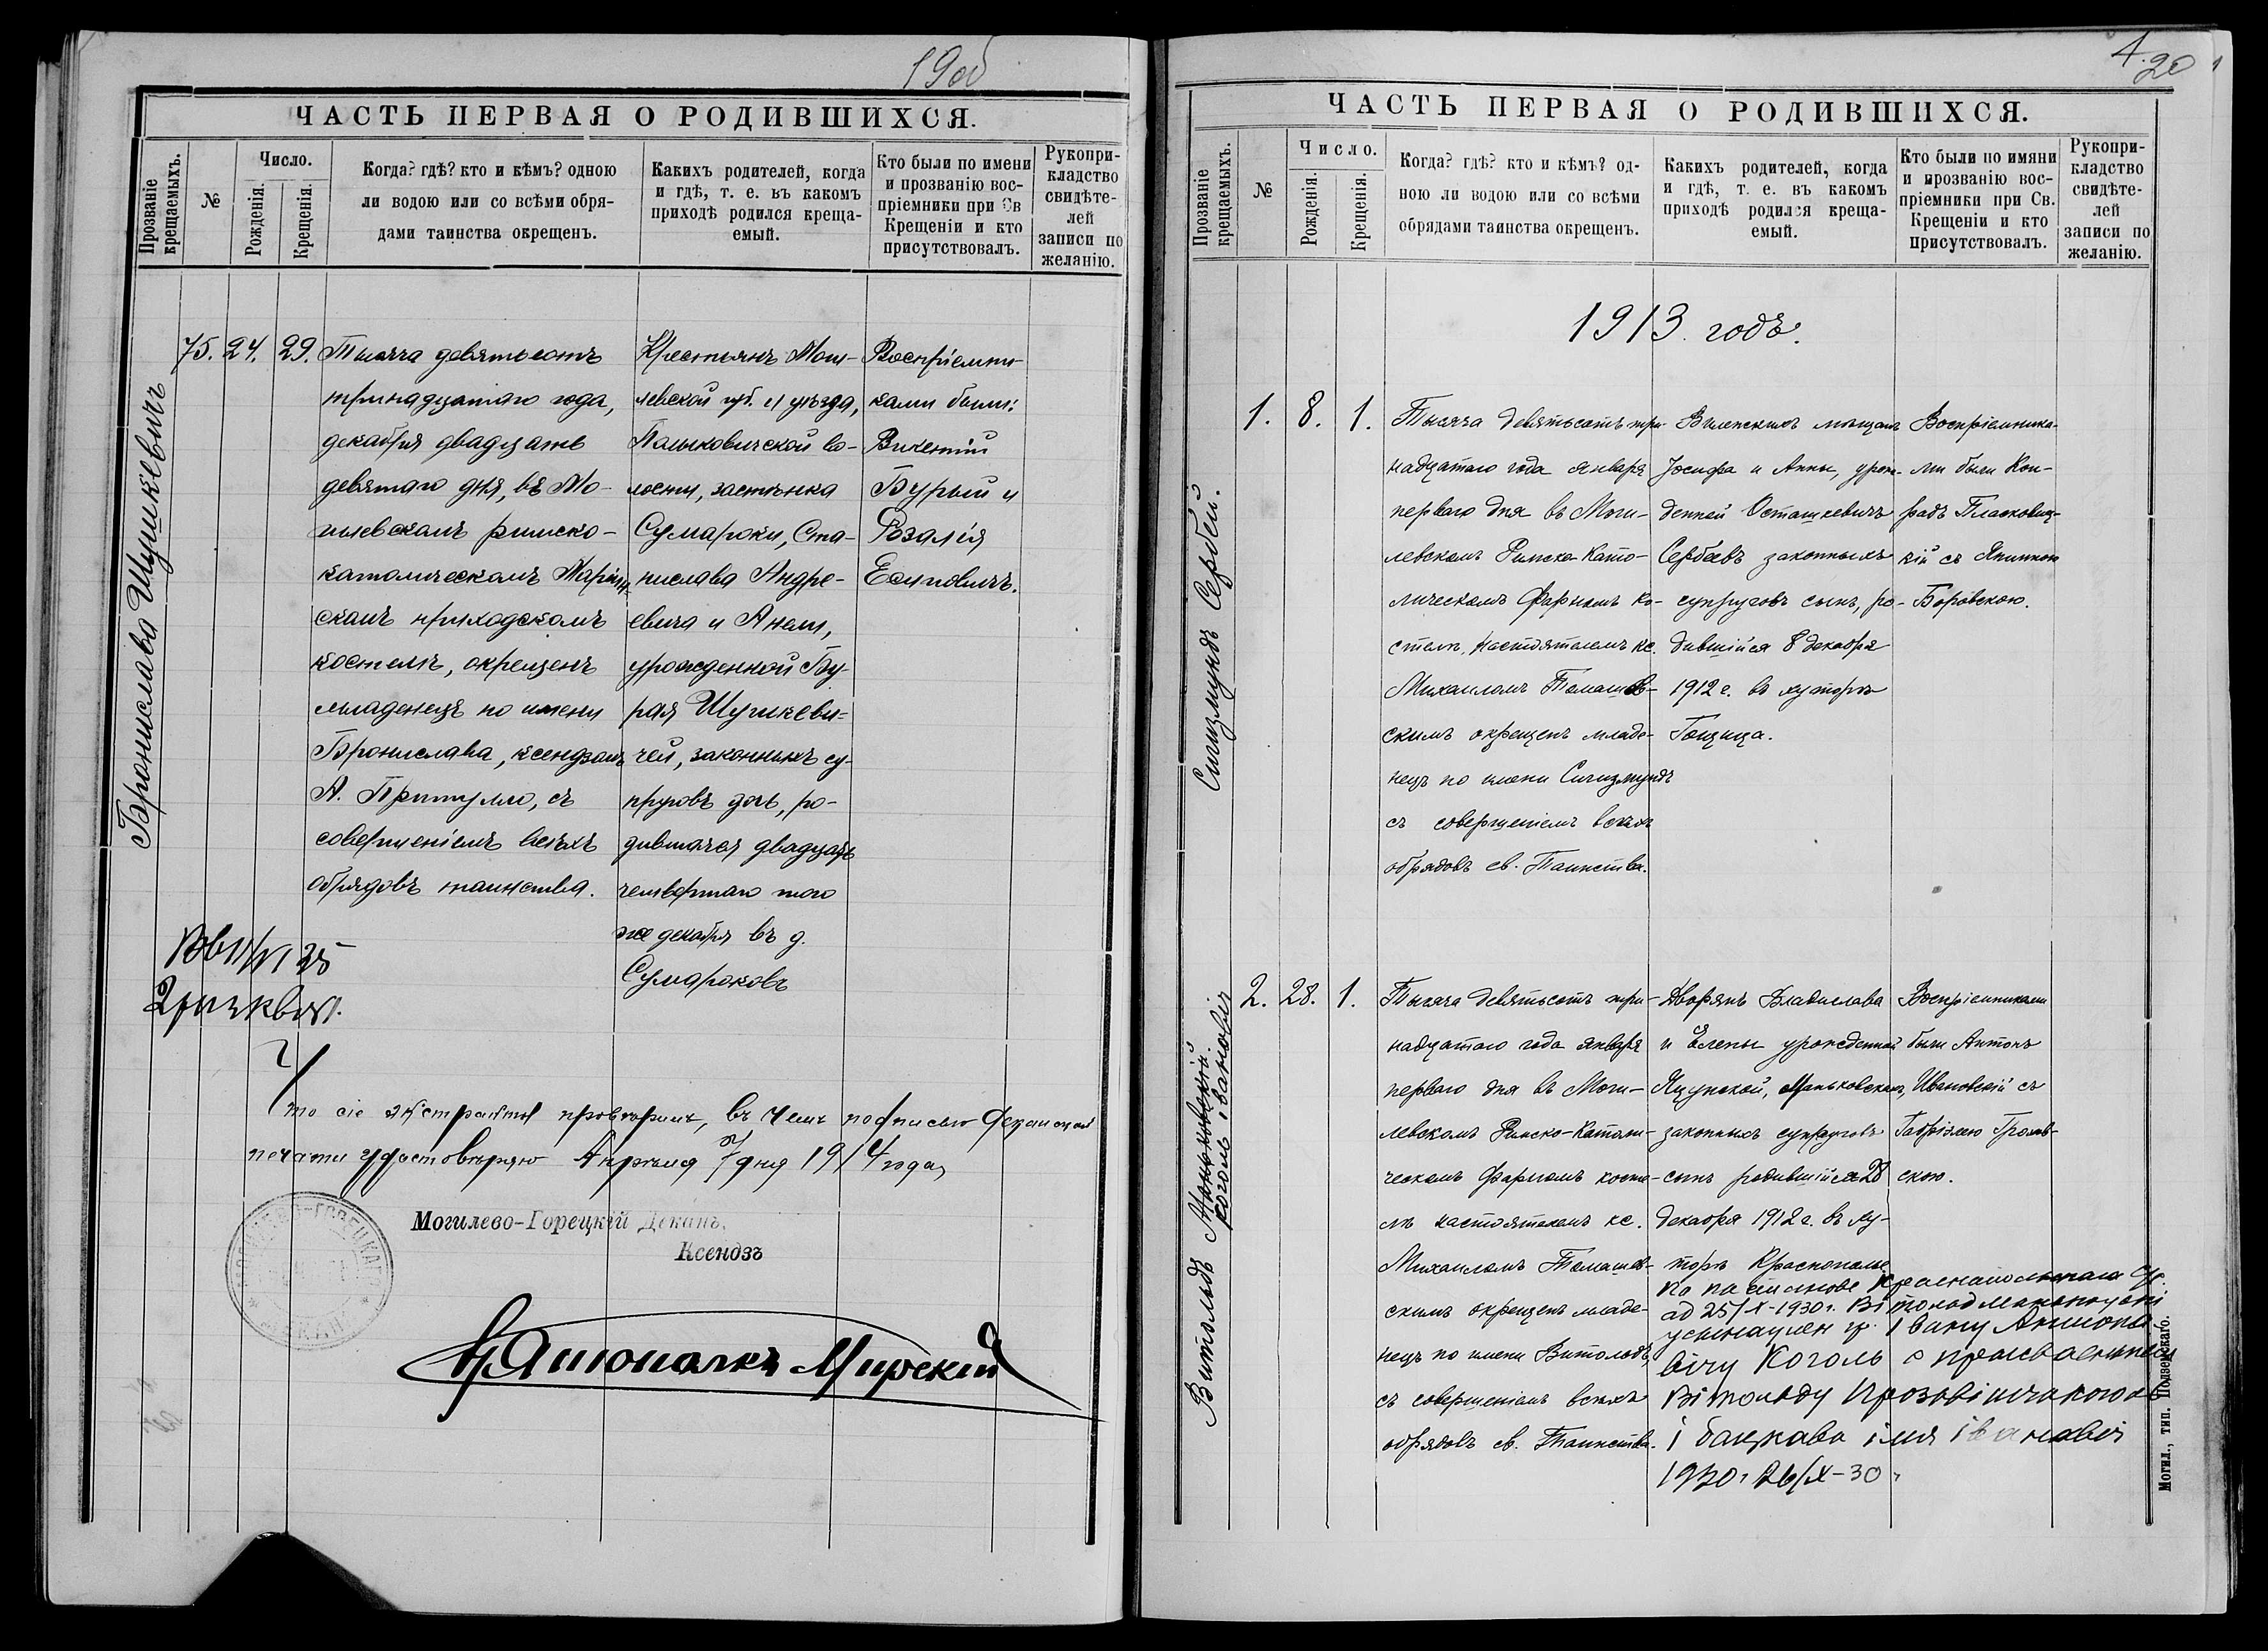 19об
ЧАСТЬ ПЕРВАЯ О РОДИВШИХСЯ.
Прозваніе крещаемыхъ.
№
Число.
Рожденія.
Крещенія.
Когда? гдѣ? кто и кѣмъ? одною
ли водою или со всѣми обря-
дами таинства окрещенъ.
Какихъ родителей, когда
и гдѣ, т. е. въ какомъ
приходѣ родился креща-
емый.
Кто были по имени
и прозванію вос-
пріемники при Св
Крещеніи и кто
присутствовалъ.
Рукопри-
кладство
свидѣте-
лей
записи по
желанію.
Бронислава Шушкевичъ
75. 24. 29.
Тысяча девятьсотъ
тринадцатаго года,
декабря двадцать
девятаго дня, въ Мо-
гилевскомъ римско-
католическомъ Маріин-
скомъ приходскомъ
костелѣ, окрещенъ
младенецъ по имени
Бронислава, ксендзомъ
А. Притулло, съ
совершеніемъ всѣхъ
обрядовъ таинства.
Крестьянъ Моги-
левской губ. и уѣзда,
Полыковичской во-
лости, застѣнка
Сумароки, Ста-
нислава Андре-
евича и Анели,
урожденной Бу-
рая Шушкеви-
чей, законныхъ су-
пруговъ дочь, ро-
дившаяся двадцать
четвертаго того
же декабря въ д.
Сумароковъ
Воспріемни-
ками были:
Викентій
Бурый и
Розалія
Есиповичъ.
Что сіе экстрактъ провѣрилъ, въ чемъ подписью
печати удостовѣряю Апрѣля 7 дня 1914 года,
Могилево-Горецкій Деканъ,
Ксендзъ
Мирскій
4. 20
ЧАСТЬ ПЕРВАЯ О РОДИВШИХСЯ.
Прозваніе крещаемыхъ.
№
Число.
Рожденія.
Крещенія.
Когда? гдѣ? кто и кѣмъ? од-
ною ли водою или со всѣми
обрядами таинства окрещенъ.
Какихъ родителей, когда
и гдѣ, т. е. въ какомъ
приходѣ родился креща-
емый.
Кто были по имяни
и прозванію вос-
пріемники при Св.
Крещеніи и кто
присутствовалъ.
Рукопри-
кладство
свидѣте-
лей
записи по
желанію.
1913 годъ.
Сигизмундъ Сербей.
1. 8. 1.
Тысяча девятьсотъ три-
надцатаго года января
перваго дня въ Моги-
левскомъ Римско-Като-
лическомъ Фарномъ ко-
стелѣ, настоятелемъ кс.
Михаиломъ Томашев-
скимъ окрещенъ младе-
нецъ по имени Сигизмундъ
съ совершеніемъ всѣхъ
обрядовъ св. Таинства.
Виленскихъ мѣщанъ
Іосифа и Анны, урож-
денной Осташкевичъ
Сербеевъ законныхъ
супруговъ сынъ, ро-
дившійся 8 декабря
1912 г. въ хуторѣ
Гощица.
Воспріемника-
ми были Кон-
радъ Пласковиц-
кій съ Яниною
Боровскою.
Витольдъ Маньковскій.
Коголь івановіч
2. 28. 1.
Тысяча девятьсотъ три-
надцатаго года января
перваго дня въ Моги-
левскомъ Римско-Католи-
ческомъ Фарномъ косте-
лѣ настоятелемъ кс.
Михаиломъ Томашев-
скимъ окрещенъ младе-
нецъ по имени Витольдъ,
съ совершеніемъ всѣхъ
обрядовъ св. Таинства.
Дворянъ Владислава
и Елены урожденной
Яцунской, Маньковскихъ,
законныхъ супруговъ
сынъ родившійся 28
декабря 1912 г. въ ху-
торѣ Краснополье
Воспріемниками
были Антонъ
Ивановскій съ
Габріэлею Громов-
скою.
Па пастанове
ад 25/X-1930 г. Вітольд
усынаулен гр. Івану Антона-
вічу Коголь з прысваеннем
Вітольду прозвішча Коголь
і бацкава імя Івановіч
1930 г 26/X-30 г
Могил., тип. Подземскаго.